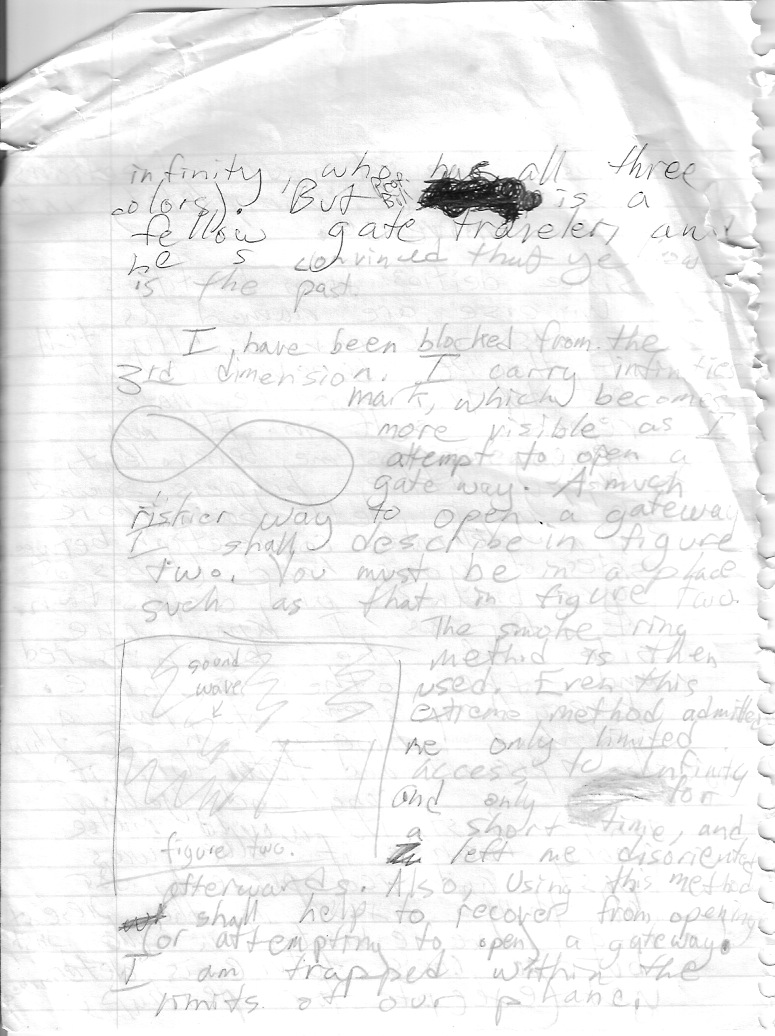 infinity, who has all three
colors). But is a
fellow gate traveler, and
he s convinced that ye
is the past.
I have been blocked from the
3rd dimension. I carry
mark, which becomes
more visible as I
attempt to open a
gate way. A much
riskier way to open a gateway
I shall describe in figure
two. You must be in a place
such as that in figure two.
The smoke ring
method is then
used. Even this
extreme method, admittes
me only limited
access to Infinity
and only for
a short time, and
left me disoriented
afterwards. Also, Using this method
shall help to recover from opening
(or attempting to open) a gateway.
I am trapped within the
limits of our
sound
wave
figure two.